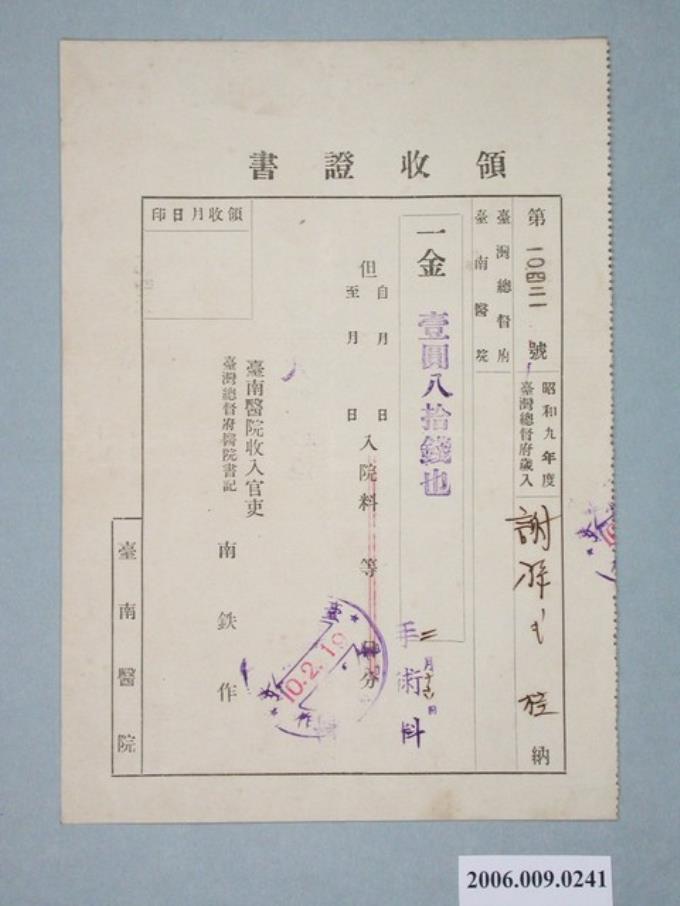 領收證書
第 一〇四三一 號
昭和九年度
臺灣總督府歲入
謝
納
臺灣總督府
臺南醫院
一金 壹圓八拾錢也
手術料
二月十六日
但 自 月 日
至 月 日
入院料 等 日分
10.2.19
領收月日印
臺南醫院收入官吏
臺灣總督府醫院書記
南鉄作
臺南醫院
2006.009.0241